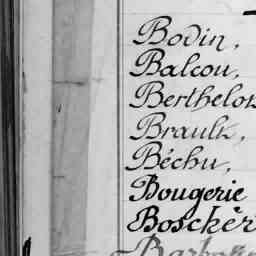 Bodin,
Balcou,
Berthelot
Brault,
Béchu,
Bougerie
Boscher